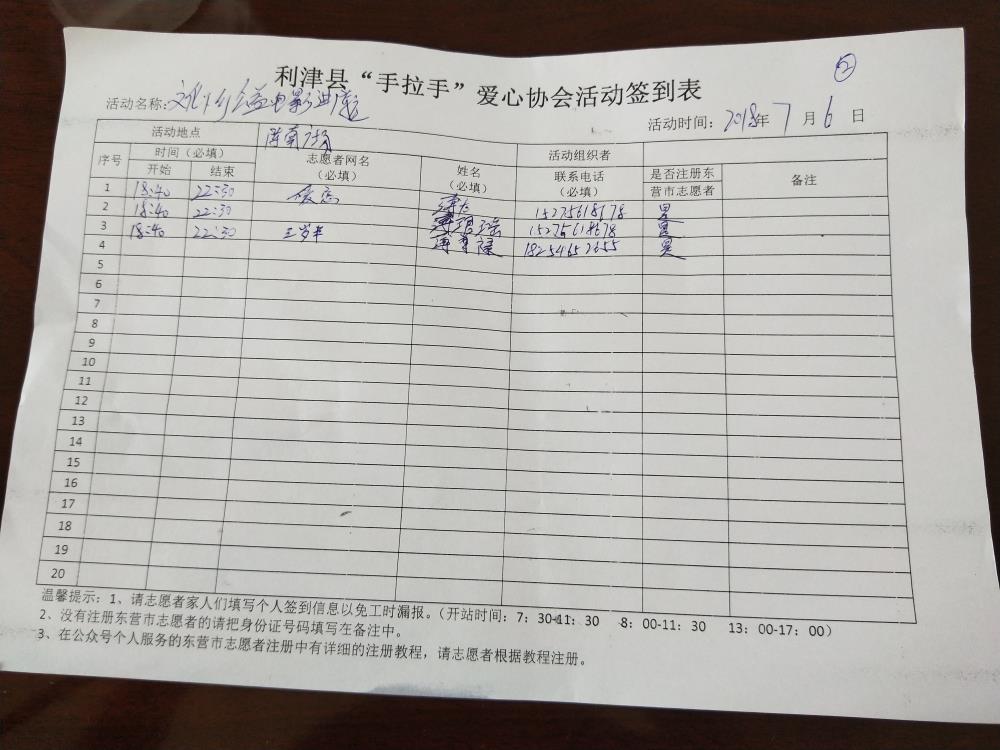 ②
利津县“手拉手”爱心协会活动签到表
活动名称：文化下乡公益电影进 活动时间：2018年7月6日
活动地点 活动组织者
序号 时间（必填） 志愿者网名（必填） 姓名（必填） 联系电话（必填） 是否注册东营市志愿者 备注
开始 结束
1 18:40 22:30 15275618678 是
2 18:40 22:30 15275618678 是
3 18:40 22:30 18254652655 是
4
5
6
7
8
9
10
11
12
13
14
15
16
17
18
19
20
温馨提示：1、请志愿者家人们填写个人签到信息以免工时漏报。（开站时间：7：30-11：30 8：00-11：30 13：00-17：00）
2、没有注册东营市志愿者的请把身份证号码填写在备注中。
3、在公众号个人服务的东营市志愿者注册中有详细的注册教程，请志愿者根据教程注册。